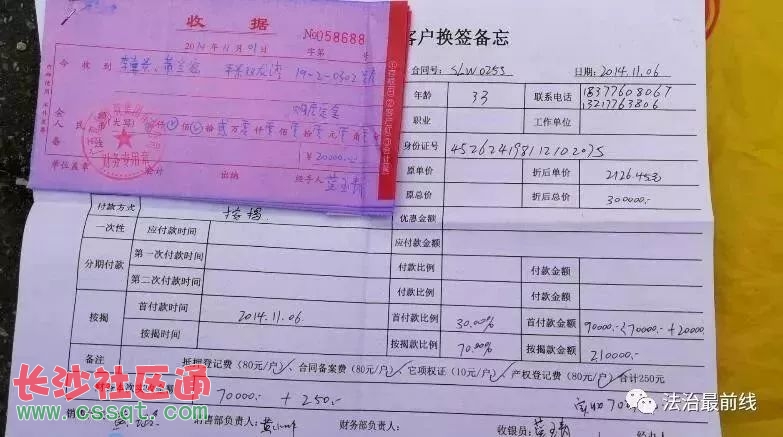 收 据
No058688
2014年11月01日 字第 号
今收到
19-2-0302
购房定金
人民币
(大写)
¥20000.—
财务专用章
单位盖章 会计 出纳 经手人
客户换签备忘
合同号: SLW0255 日期: 2014.11.06
年龄 33 联系电话 18377608067
13217763806
职业 工作单位
身份证号 452624198112102075
原单价 折后单价 2126.45元
原总价 折后总价 300000.-
付款方式 按揭 优惠金额
一次性 应付款时间 应付款金额
分期付款 第一次付款时间 付款比例 付款金额
第二次付款时间 付款比例 付款金额
按揭 首付款时间 2014.11.06 首付款比例 30.00% 首付款金额 90000.-(70000.-+20000.
按揭时间 按揭款比例 70.00% 按揭款金额 210000.-
备注 抵押登记费(80元/户)、合同备案费(80元/户)、它项权证(10元/户)、产权登记费(80元/户)合计250元
70000.- + 250.-
销售部负责人: 财务部负责人: 收银员:
长沙社区通
www.cssqt.com
法治最前线